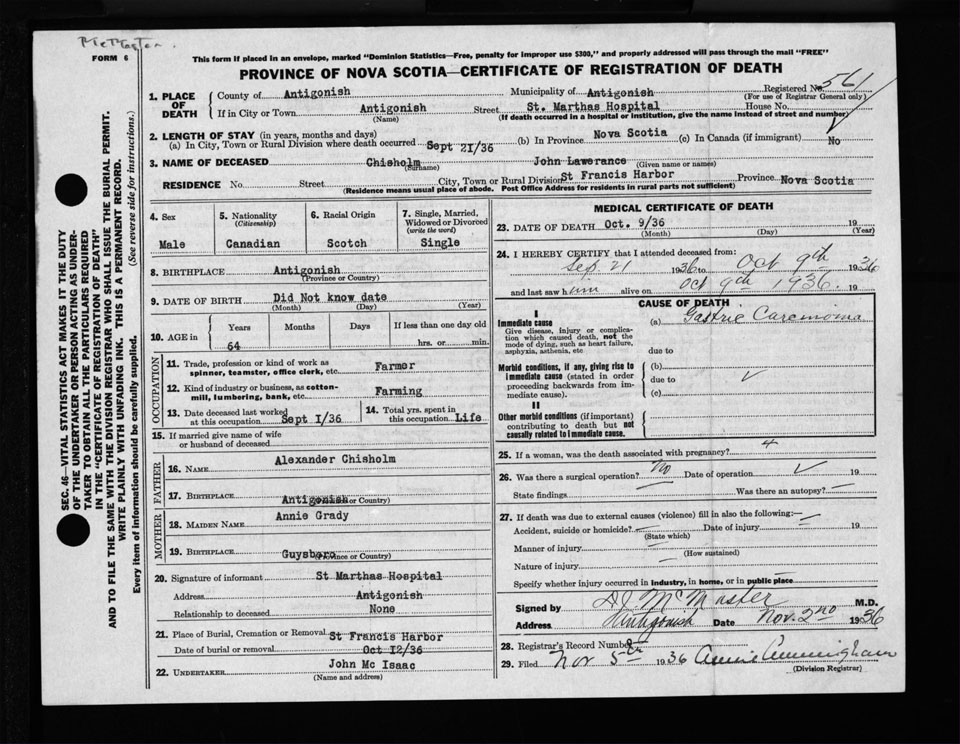 McMaster.
FORM 6
This form if placed in an envelope, marked "Dominion Statistics—Free, penalty for improper use $300," and properly addressed will pass through the mail "FREE"
PROVINCE OF NOVA SCOTIA—CERTIFICATE OF REGISTRATION OF DEATH
Registered No. 561
(For use of Registrar General only)
1. PLACE OF DEATH
County of Antigonish Municipality of Antigonish
If in City or Town Antigonish Street St. Marthas Hospital House No.
(Name) (If death occurred in a hospital or institution, give the name instead of street and number)
2. LENGTH OF STAY (in years, months and days)
(a) In City, Town or Rural Division where death occurred Sept 2I/36 (b) In Province Nova Scotia (c) In Canada (if immigrant) No
3. NAME OF DECEASED Chisholm John Lawerance
(Surname) (Given name or names)
RESIDENCE No. Street City, Town or Rural Division St Francis Harbor Province Nova Scotia
(Residence means usual place of abode. Post Office Address for residents in rural parts not sufficient)
4. Sex
Male
5. Nationality
(Citizenship)
Canadian
6. Racial Origin
Scotch
7. Single, Married, Widowed or Divorced
(write the word)
Single
8. BIRTHPLACE Antigonish
(Province or Country)
9. DATE OF BIRTH Did Not know date
(Month) (Day) (Year)
10. AGE in
Years Months Days If less than one day old
64 hrs. or min.
OCCUPATION
11. Trade, profession or kind of work as
spinner, teamster, office clerk, etc. Farmor
12. Kind of industry or business, as cotton-
mill, lumbering, bank, etc. Farming
13. Date deceased last worked
at this occupation Sept I/36
14. Total yrs. spent in
this occupation Life
15. If married give name of wife
or husband of deceased
FATHER
16. NAME Alexander Chisholm
17. BIRTHPLACE Antigonish
(Province or Country)
MOTHER
18. MAIDEN NAME Annie Grady
19. BIRTHPLACE Guysboro
(Province or Country)
20. Signature of informant St Marthas Hospital
Address Antigonish
Relationship to deceased None
21. Place of Burial, Cremation or Removal St Francis Harbor
Date of burial or removal Oct I2/36
22. UNDERTAKER John Mc Isaac
(Name and address)
MEDICAL CERTIFICATE OF DEATH
23. DATE OF DEATH Oct. 9/36 19
(Month) (Day) (Year)
24. I HEREBY CERTIFY that I attended deceased from:
Sep. 21 1936 to Oct 9th 1936
and last saw him alive on Oct 9th 1936. 19
CAUSE OF DEATH
I
Immediate cause
(a) Gastric Carcinoma
Give disease, injury or complica-
tion which caused death, not the
mode of dying, such as heart failure,
asphyxia, asthenia, etc
due to
Morbid conditions, if any, giving rise to
immediate cause (stated in order
proceeding backwards from im-
mediate cause).
(b)
due to
(c)
II
Other morbid conditions (if important)
contributing to death but not
causally related to immediate cause.
25. If a woman, was the death associated with pregnancy?
26. Was there a surgical operation? No Date of operation 19
State findings Was there an autopsy?
27. If death was due to external causes (violence) fill in also the following:
Accident, suicide or homicide? Date of injury 19
(State which)
Manner of injury
(How sustained)
Nature of injury
Specify whether injury occurred in industry, in home, or in public place
Signed by D J McMaster M.D.
Address Antigonish Date Nov. 2nd 1936
28. Registrar's Record Number
29. Filed Nov 5th 1936 Annie Cunningham
(Division Registrar)
SEC. 46—VITAL STATISTICS ACT MAKES IT THE DUTY
OF THE UNDERTAKER OR PERSON ACTING AS UNDER-
TAKER TO OBTAIN ALL THE PARTICULARS REQUIRED
IN THE "CERTIFICATE OF REGISTRATION OF DEATH"
AND TO FILE THE SAME WITH THE DIVISION REGISTRAR WHO SHALL ISSUE THE BURIAL PERMIT.
WRITE PLAINLY WITH UNFADING INK. THIS IS A PERMANENT RECORD.
Every item of information should be carefully supplied. (See reverse side for instructions.)